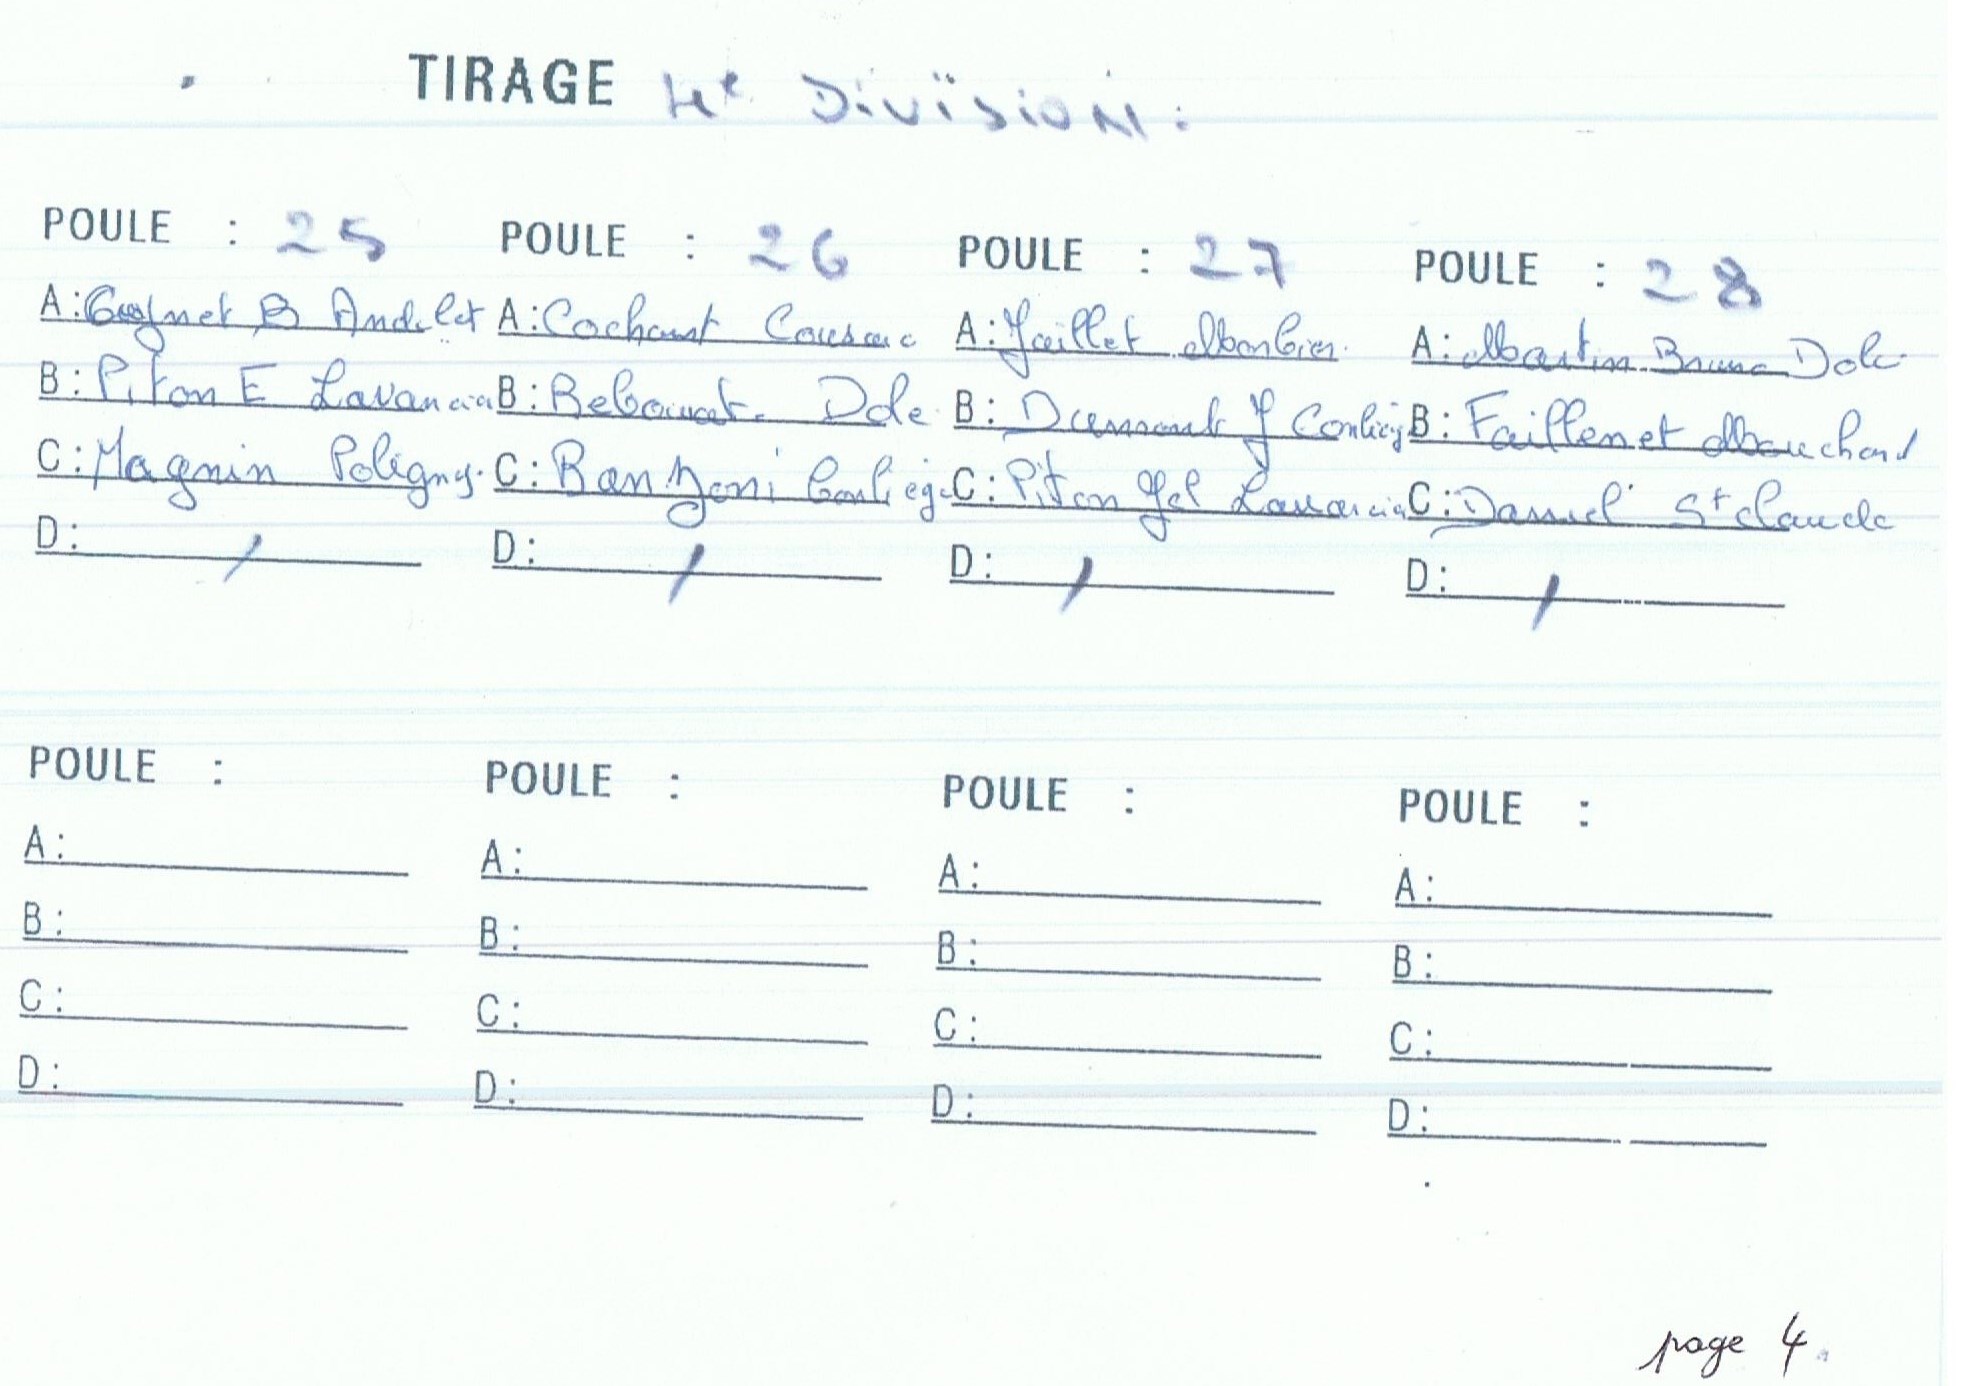 TIRAGE 4e Division :
POULE : 25 POULE : 26 POULE : 27 POULE : 28
A: B Andelot A: Cochant Cousance A: Jaillet A: Martin Bruno Dole
B: Piton E Lavancia B: Dole B: Dumont J Conliège B: Faillenet Mouchard
C: Magnin Poligny. C: Banzoni Conliège C: Piton Lavancia C: Daniel St Claude
D: / D: / D: / D: /
POULE : POULE : POULE : POULE :
A: A: A: A:
B: B: B: B:
C: C: C: C:
D: D: D: D:
page 4.